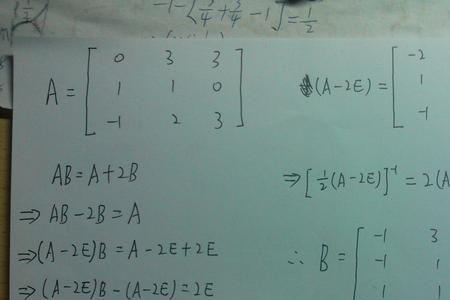 -1-[3/4+3/4-1]=1/2
A = [ 0 3 3
1 1 0
-1 2 3 ]
AB=A+2B
⇒ AB-2B=A
⇒(A-2E)B=A-2E+2E
⇒(A-2E)B-(A-2E)=2E
(A-2E)= [ -2
1
-1
⇒[½(A-2E)]⁻¹=2(A
∴ B= [ -1 3
-1 1
1 1